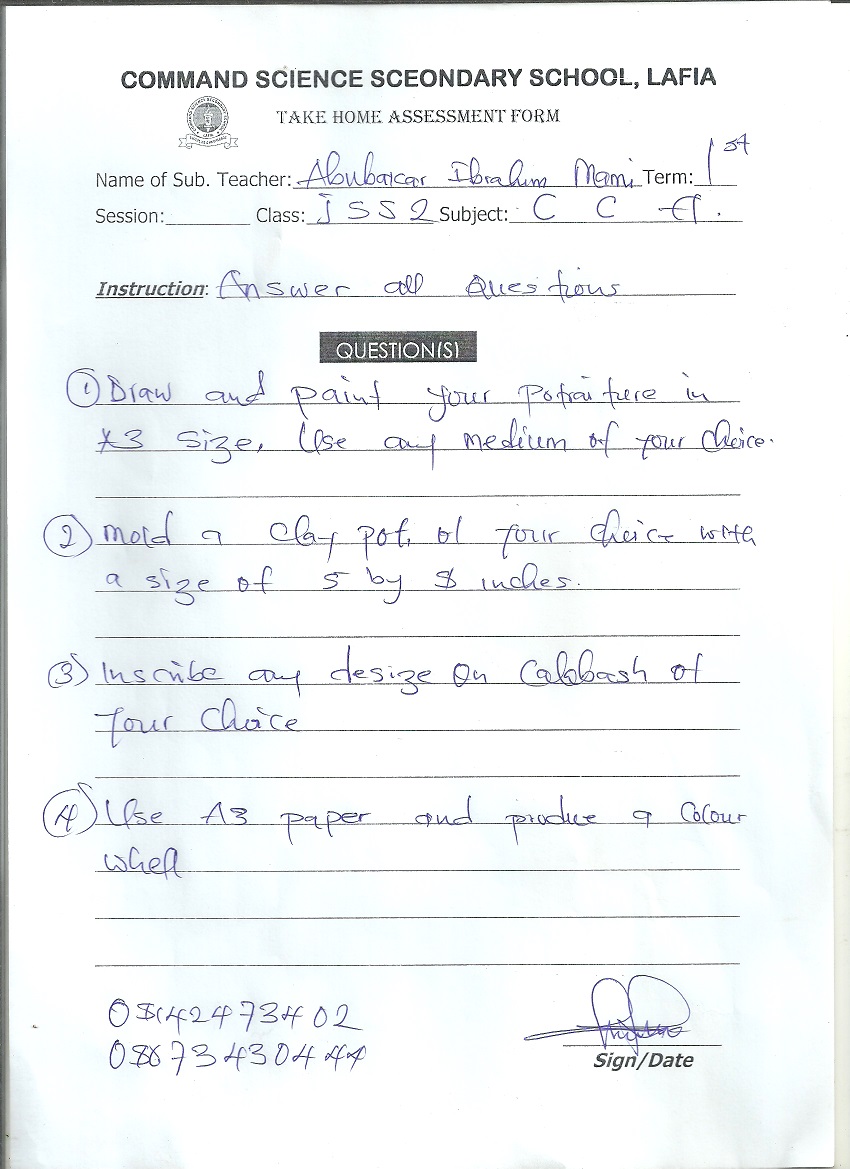 COMMAND SCIENCE SCEONDARY SCHOOL, LAFIA
TAKE HOME ASSESSMENT FORM
Name of Sub. Teacher: Abubakar Ibrahim Mami Term: 1st
Session: Class: JSS2 Subject: C C A.
Instruction: Answer all Questions
QUESTION(S)
① Draw and paint your Potraiture in
A3 Size. Use any medium of your choice.
② Mold a clay pot of your choice with
a size of 5 by 8 inches.
③ Inscribe any desize on Calabash of
your Choice
④ Use A3 paper and produce a Colour
whell
Sign/Date